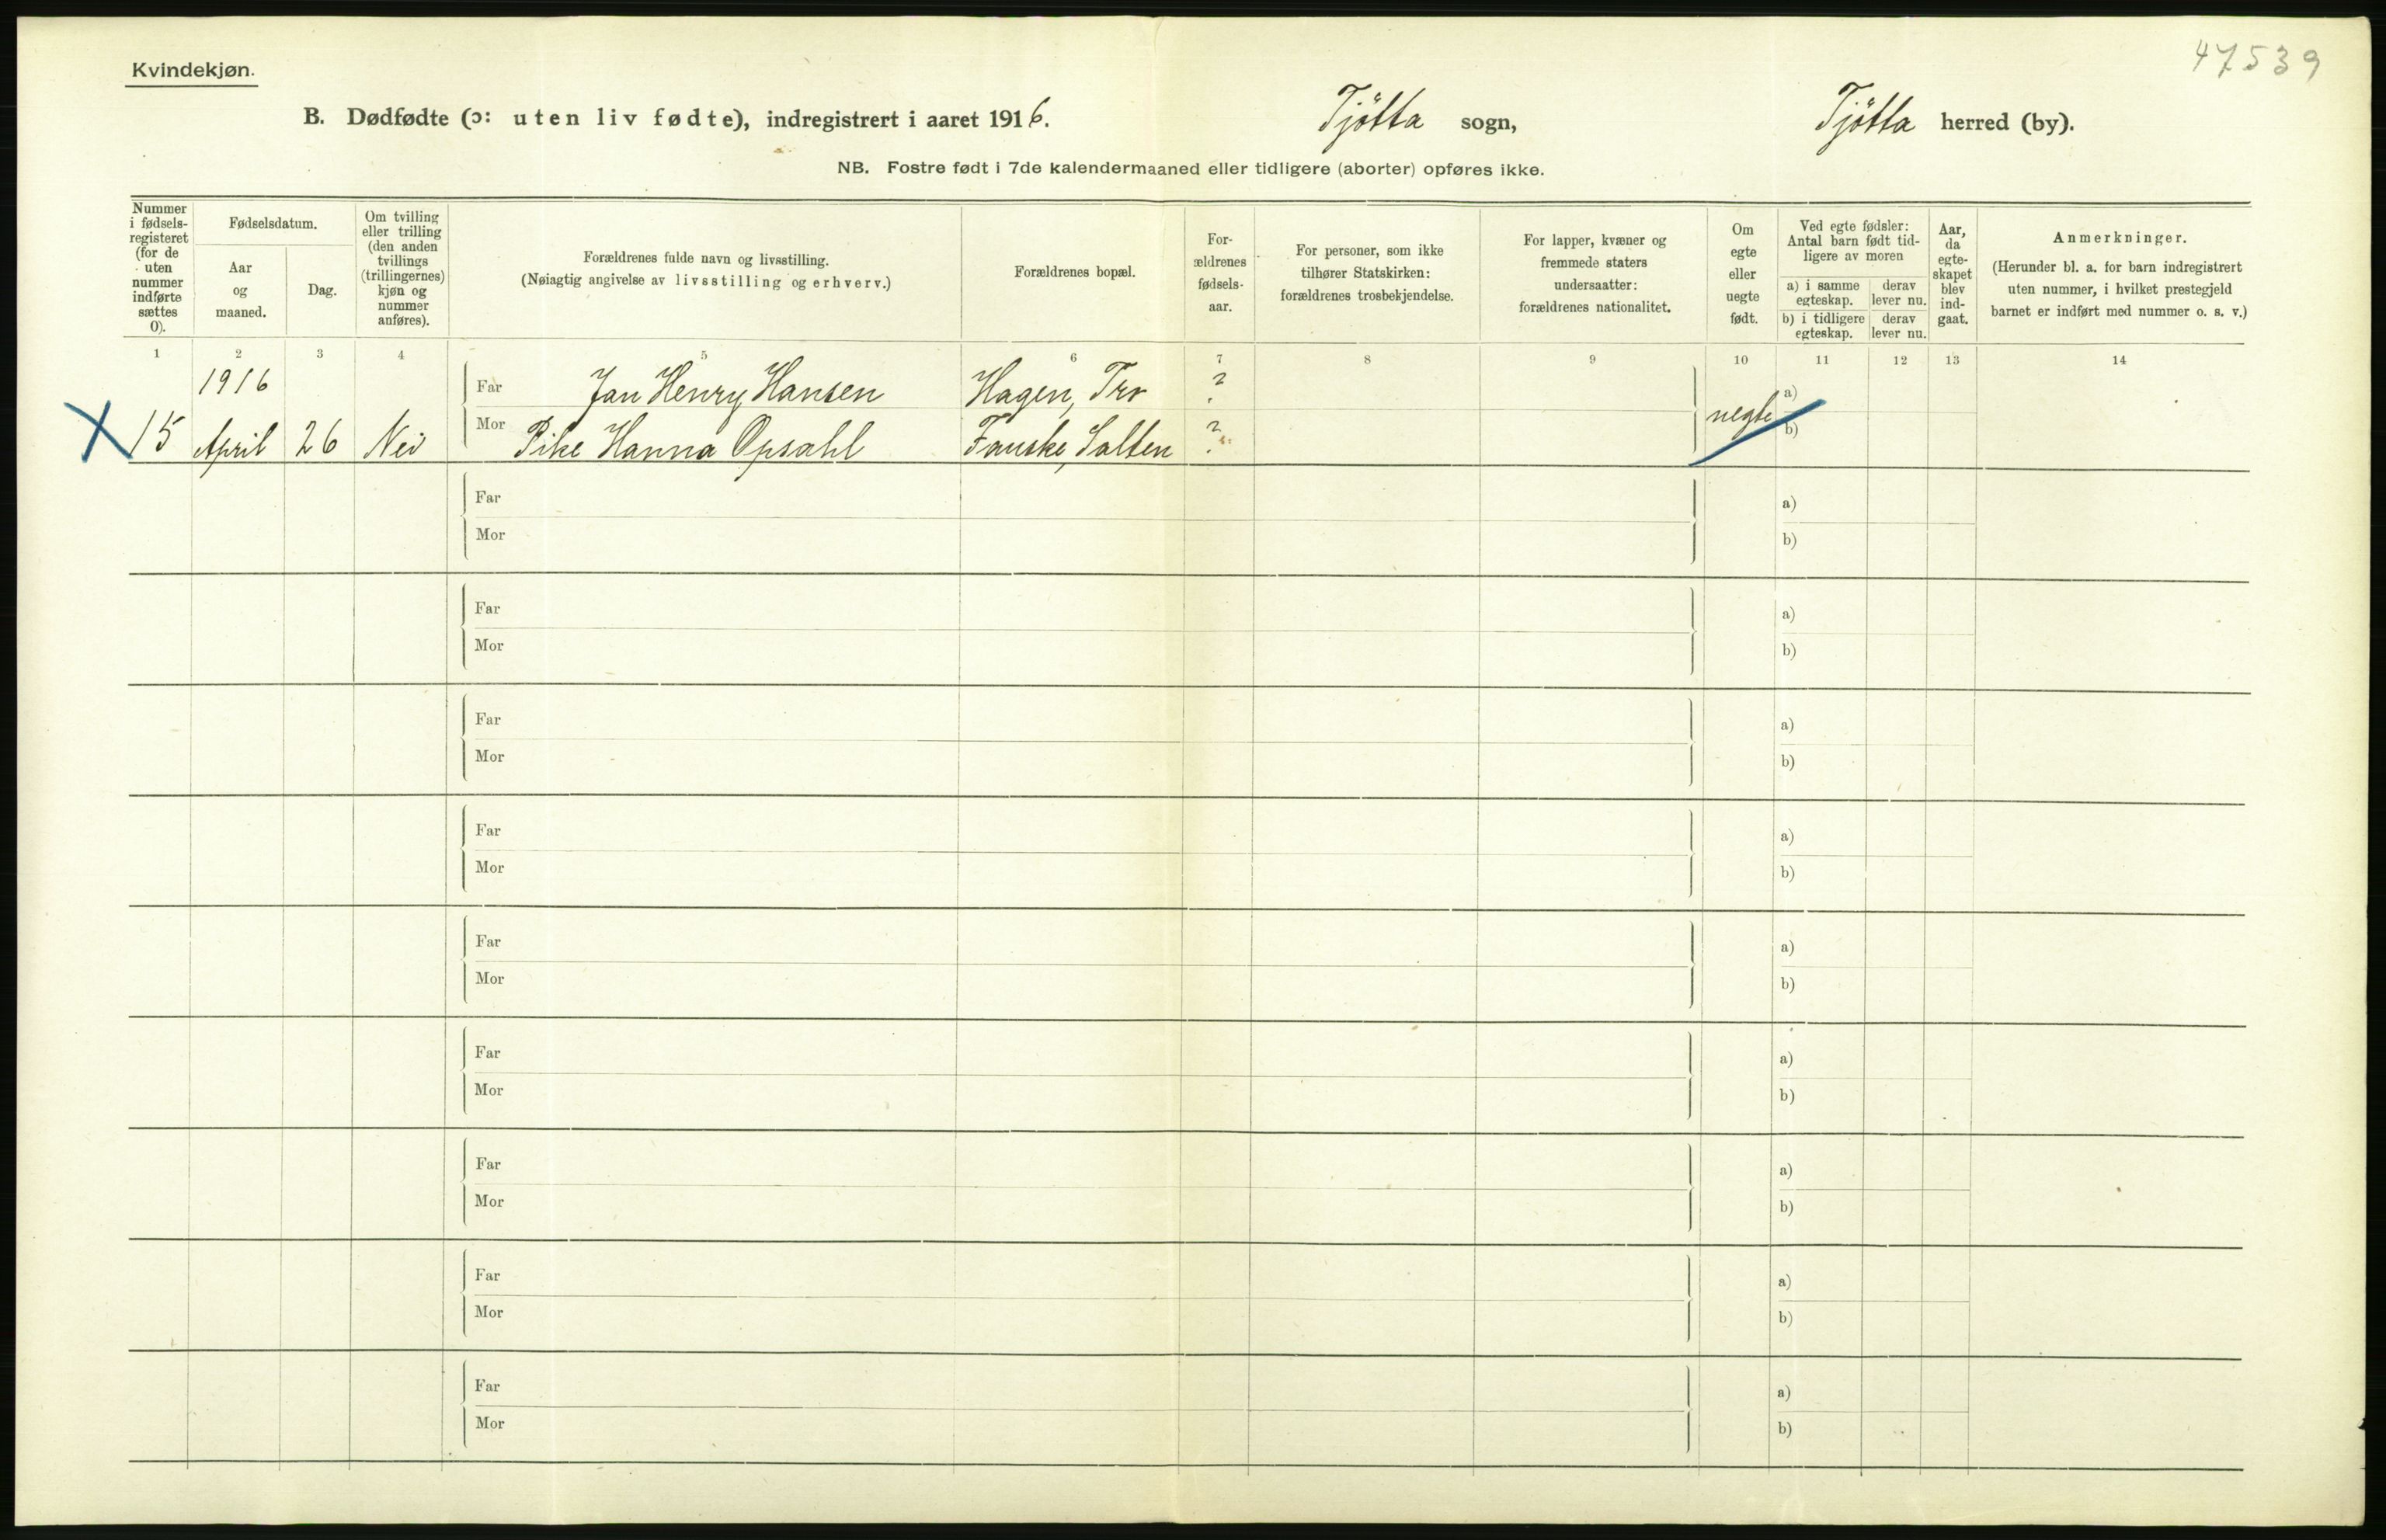 47539
Kvindekjøn.
B. Dødfødte (ɔ: uten liv fødte), indregistrert i aaret 1916. Tjötta sogn, Tjötta herred (by).
NB. Fostre født i 7de kalendermaaned eller tidligere (aborter) opføres ikke.
Nummer
i fødsels-
registeret
(for de
uten
nummer
indførte
sættes
0).
Fødselsdatum.
Aar
og
maaned.
Dag.
Om tvilling
eller trilling
(den anden
tvillings
(trillingernes)
kjøn og
nummer
anføres).
Forældrenes fulde navn og livsstilling.
(Nøiagtig angivelse av livsstilling og erhverv.)
Forældrenes bopæl.
For-
ældrenes
fødsels-
aar.
For personer, som ikke
tilhører Statskirken:
forældrenes trosbekjendelse.
For lapper, kvæner og
fremmede staters
undersaatter:
forældrenes nationalitet.
Om
egte
eller
uegte
født.
Ved egte fødsler:
Antal barn født tid-
ligere av moren
a) i samme
egteskap.
derav
lever nu.
b) i tidligere
egteskap.
derav
lever nu.
Aar,
da
egte-
skapet
blev
ind-
gaat.
Anmerkninger.
(Herunder bl. a. for barn indregistrert
uten nummer, i hvilket prestegjeld
barnet er indført med nummer o. s. v.)
1 2 3 4 5 6 7 8 9 10 11 12 13 14
1916 Far Jan Henry Hansen Hagen, Tro ? a)
15 April 26 Nei Mor Pike Hanna Opsahl Fauske, Salten ? uegte b)
Far a)
Mor b)
Far a)
Mor b)
Far a)
Mor b)
Far a)
Mor b)
Far a)
Mor b)
Far a)
Mor b)
Far a)
Mor b)
Far a)
Mor b)
Far a)
Mor b)